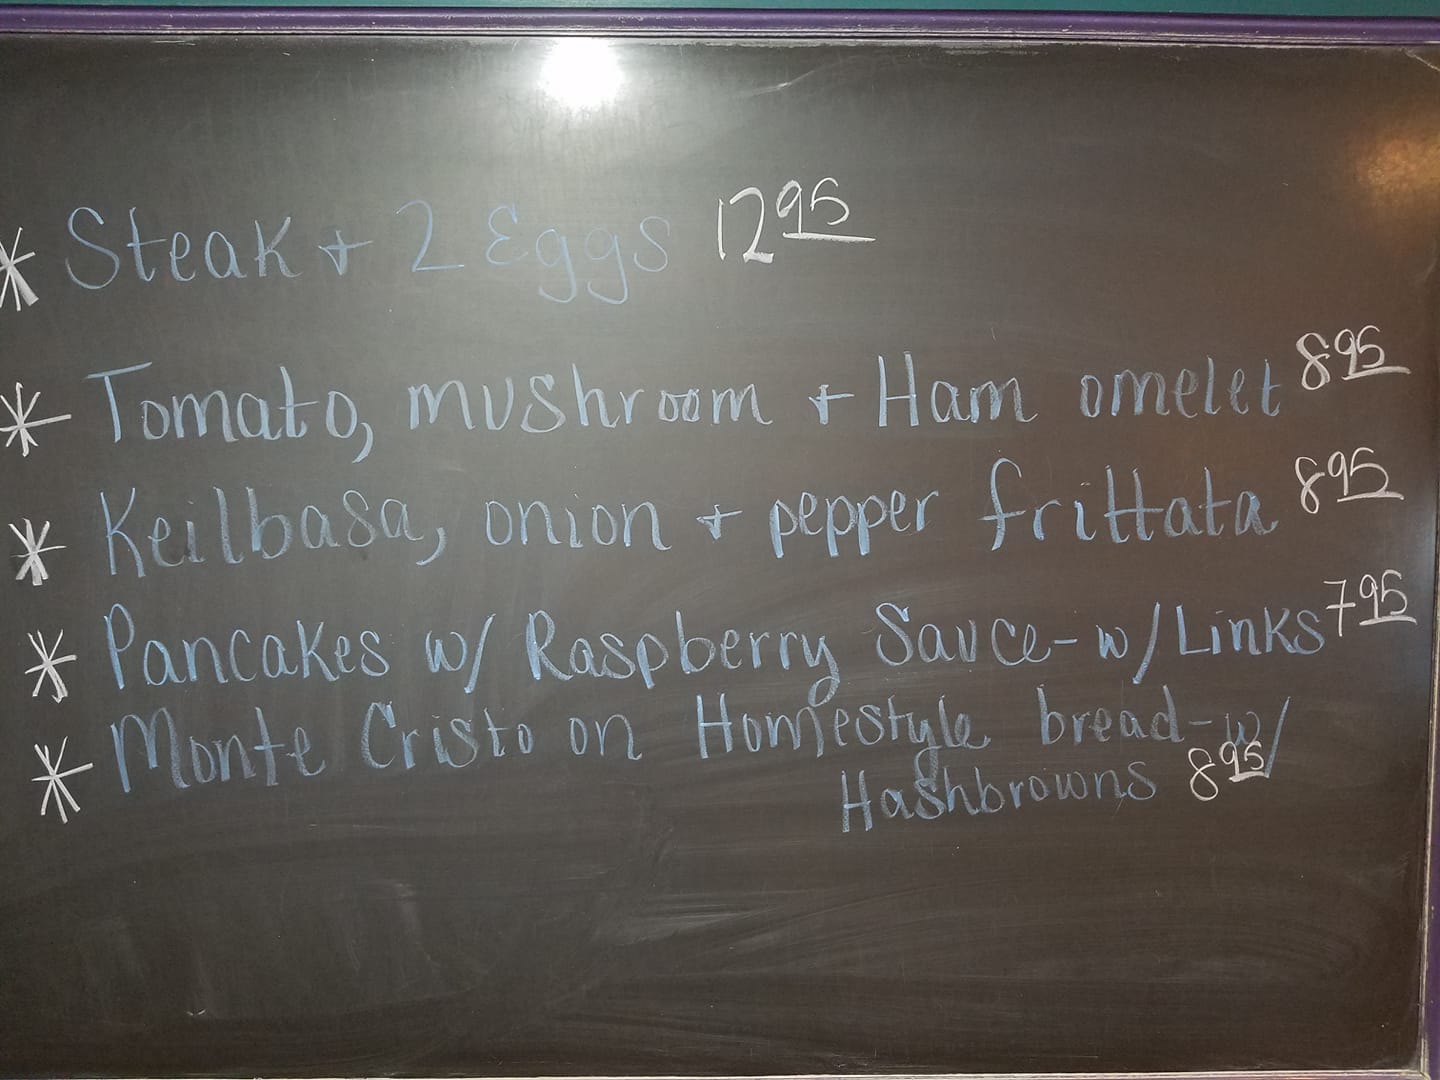 * Steak + 2 Eggs 12 95
* Tomato, mushroom + Ham omelet 8 95
* Keilbasa, onion + pepper frittata 8 95
* Pancakes w/ Raspberry Sauce - w/ Links 7 95
* Monte Cristo on Homestyle bread - w/
Hashbrowns 8 95